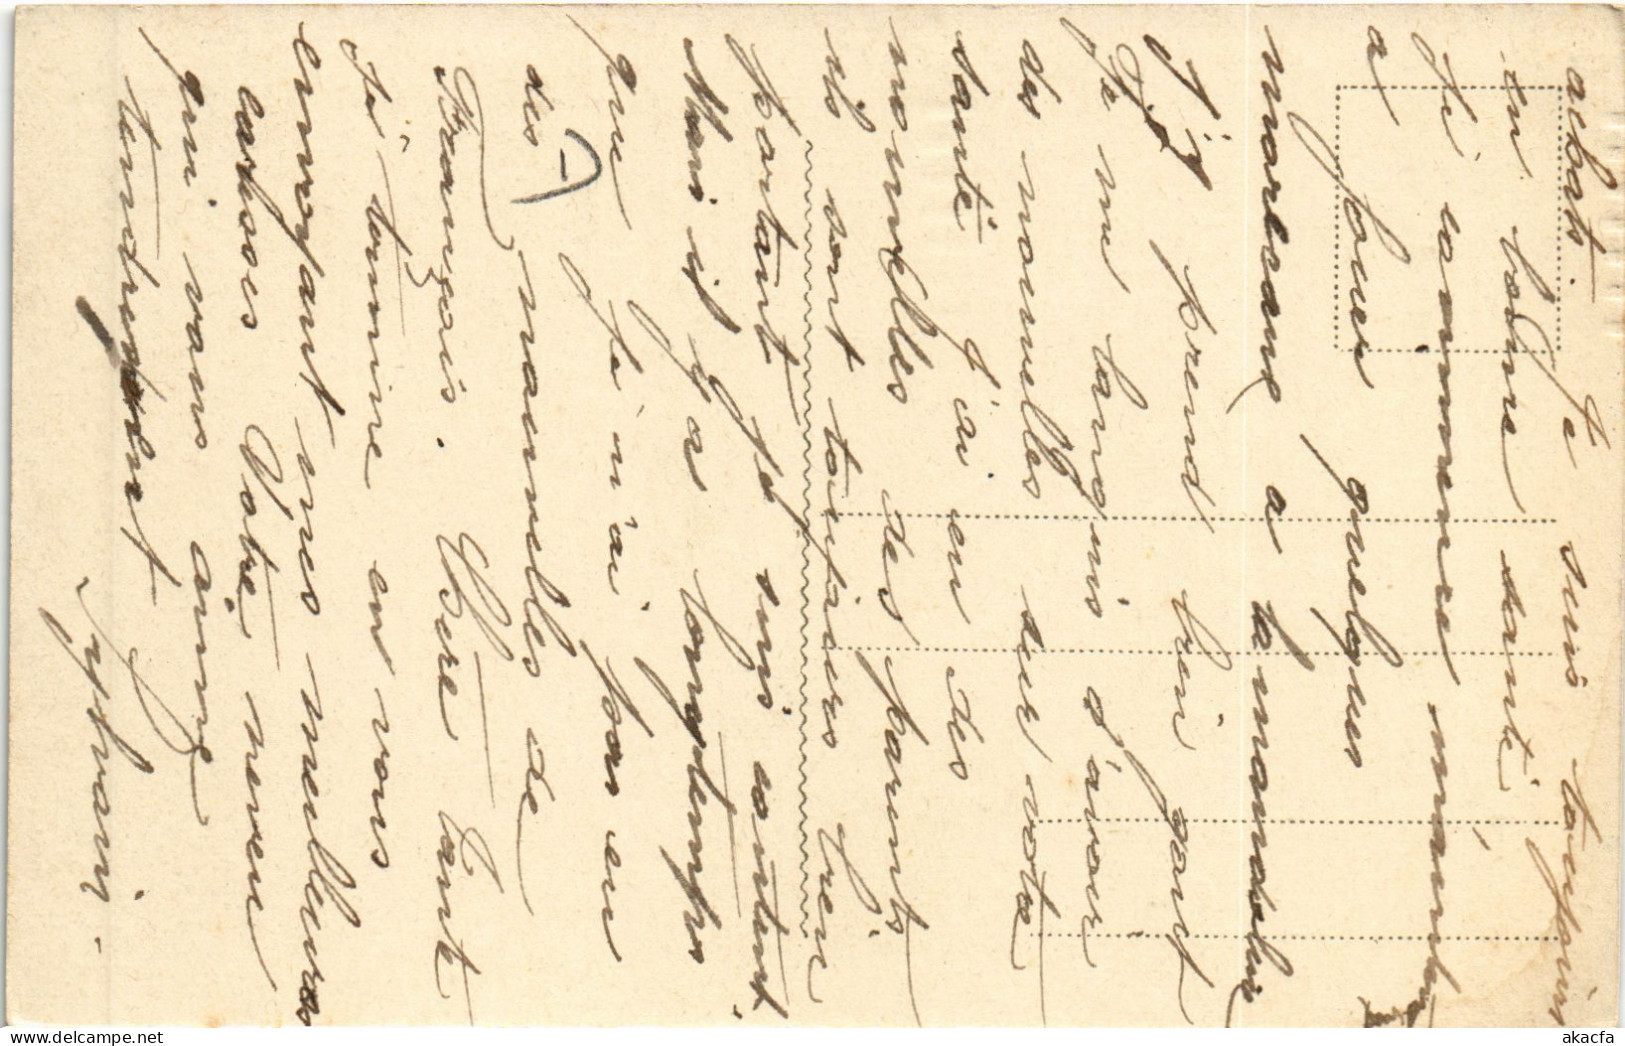 achats. Je suis toujours
en bonne santé
Je commence mainten
a jouer quelques
morceaux a la mandolin
j'y prend bien gout
Je me languis d'avoir
des nouvelles sur vote
santé J'ai eu des
nouvelles des parents
ils sont toujours bien
portant Je suis content
Mais il y a longtemps
que Je n'ai pas eu
des nouvelles de
François. Chere Tante
Je termine en vous
envoyant mes meilleures
carsses Votre neveu
qui vous aime
tendrement
Sylvain.
akacfa